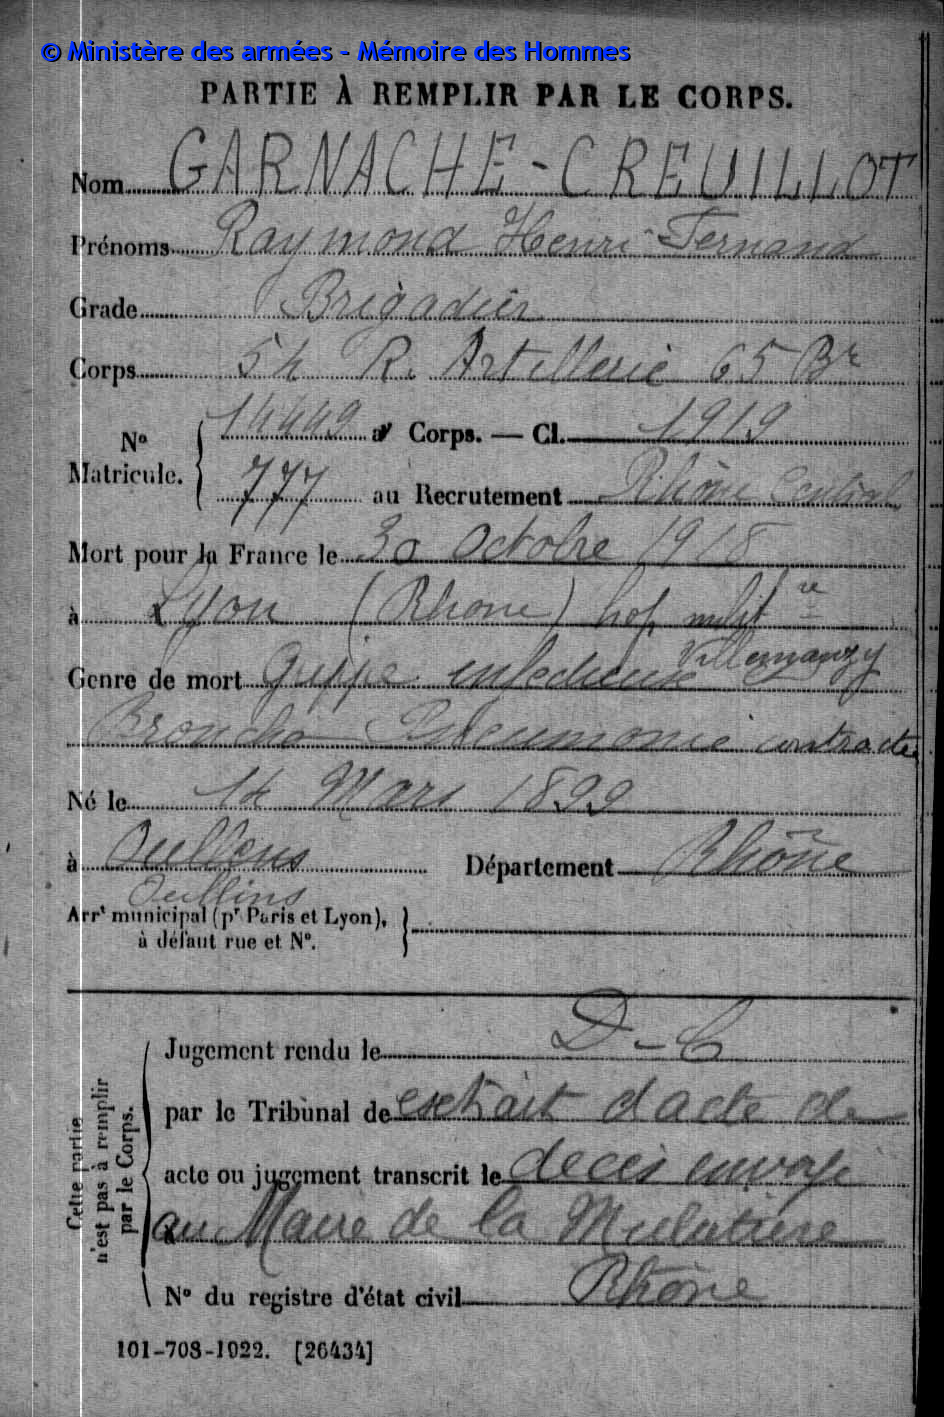 © Ministère des armées - Mémoire des Hommes
PARTIE À REMPLIR PAR LE CORPS.
Nom GARNACHE-CREUILLOT
Prénoms Raymond Henri-Fernand
Grade Brigadier
Corps 54 R. Artillerie 65 Bie
No Matricule. { 14449 au Corps. — Cl. 1919
777 au Recrutement Rhône Central
Mort pour la France le 30 Octobre 1918
à Lyon (Rhone) hop. militre
Villemanzy
Genre de mort Grippe infectieuse
Broncho Pneumonie contractée
Né le 14 Mars 1899
à Oullens Département Rhône
Oullins
Arrt municipal (pr Paris et Lyon),
à défaut rue et No.
Cette partie
n'est pas à remplir
par le Corps.
Jugement rendu le D-C
par le Tribunal de extrait d'acte de
acte ou jugement transcrit le décès envoyé
au Maire de la Mulatière
No du registre d'état civil Rhône
101-708-1922. [26434]